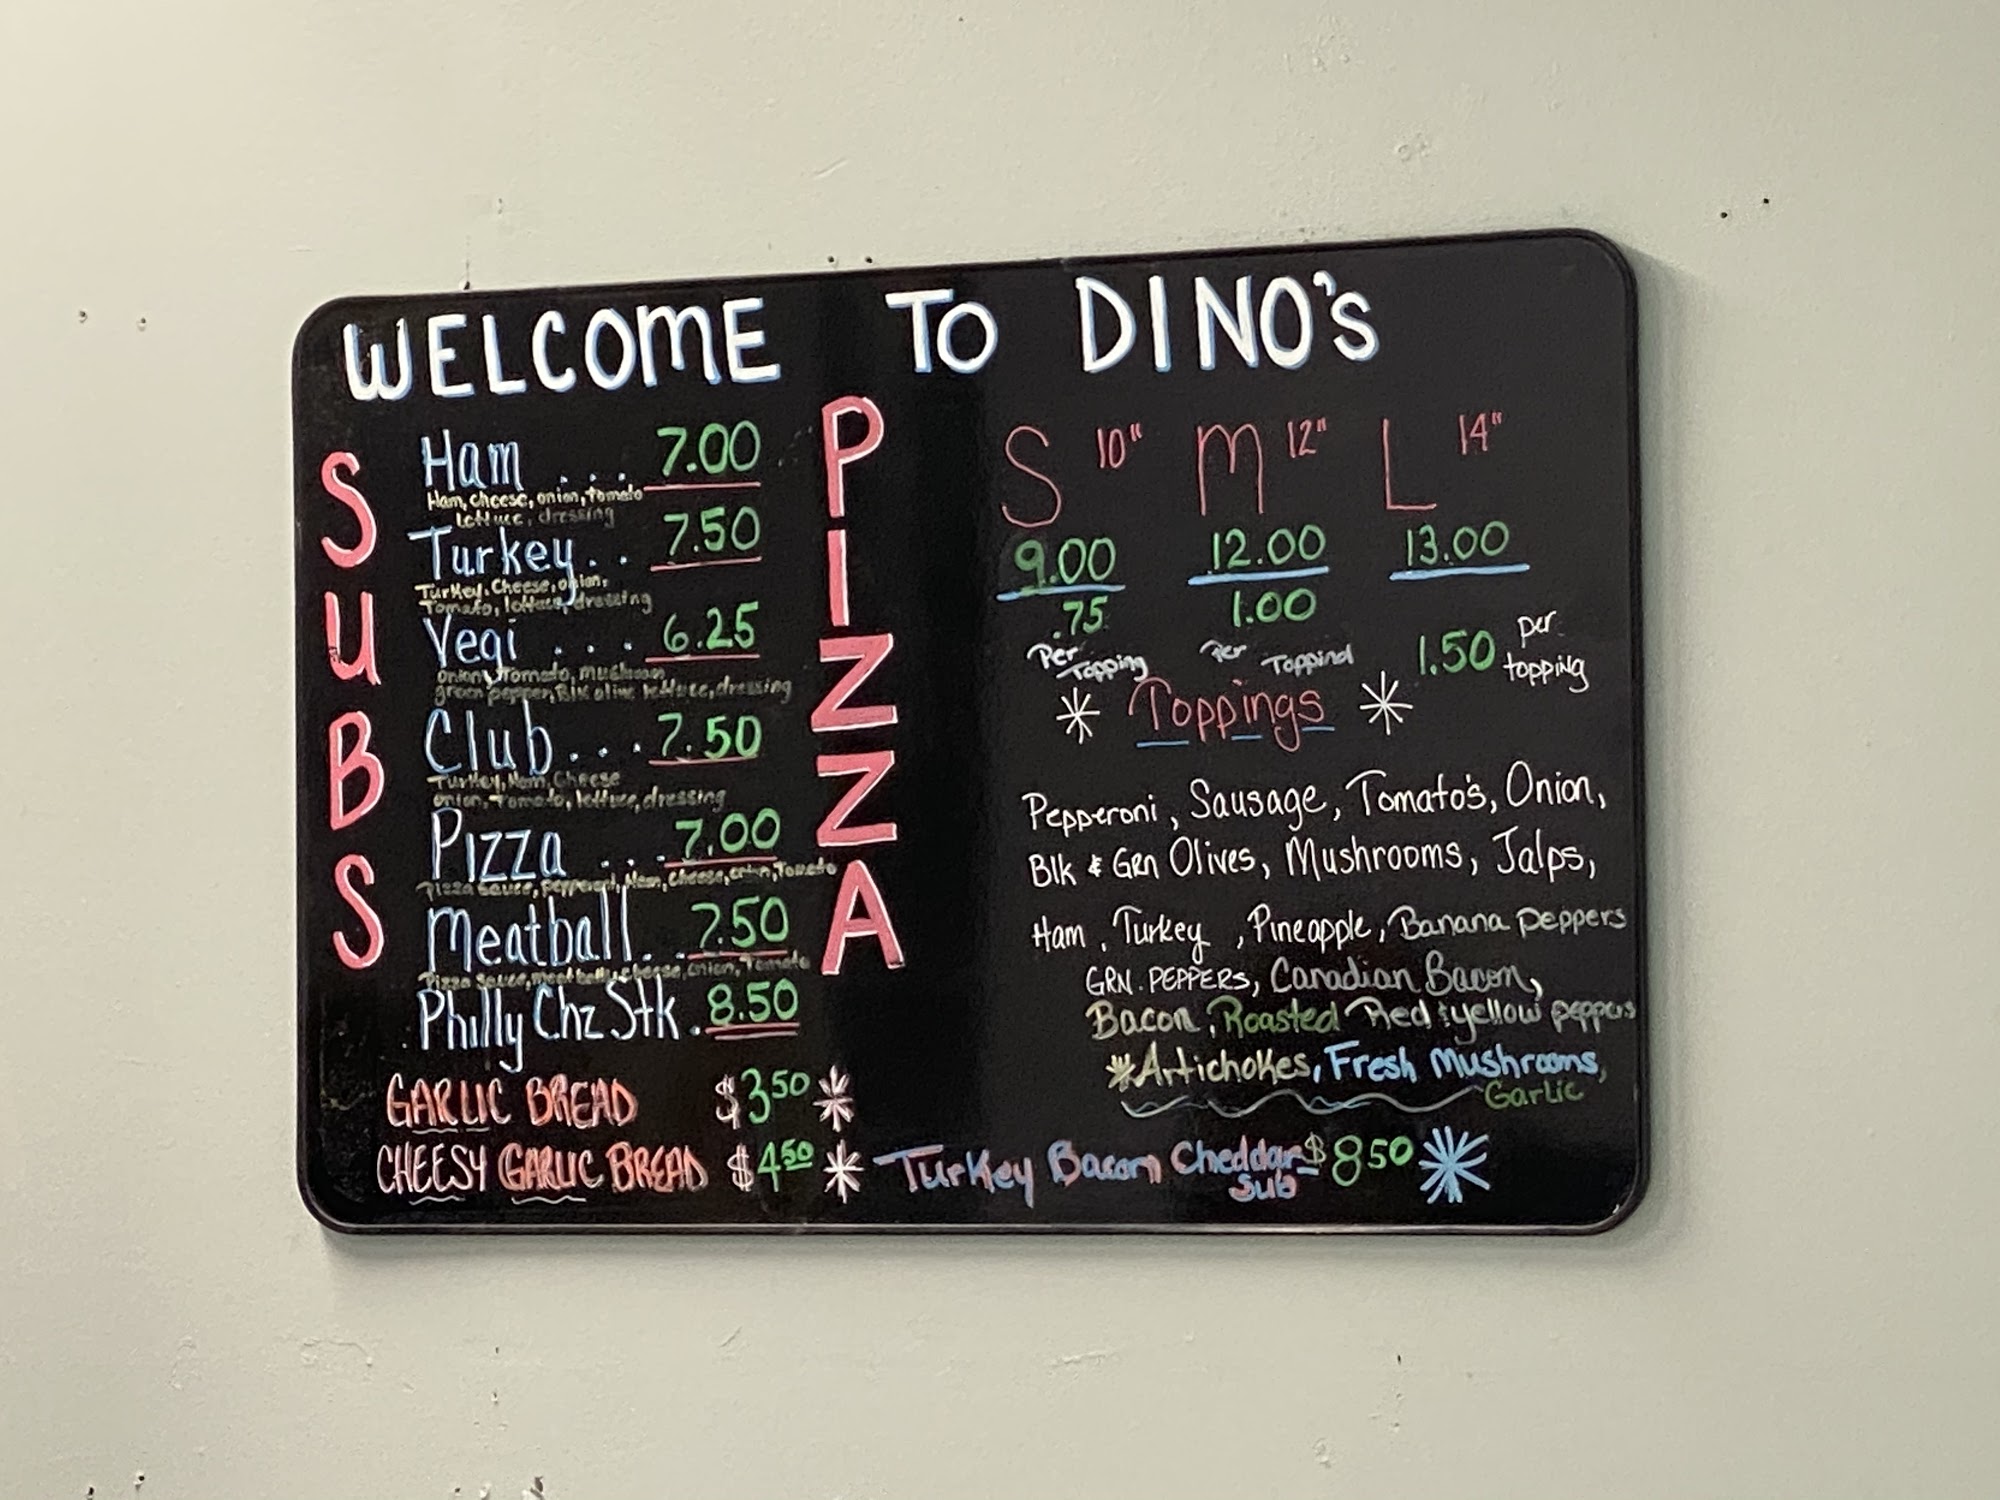 WELCOME TO DINO's
SUBS
Ham .... 7.00
Ham, cheese, onion, tomato
lettuce, dressing
Turkey.. 7.50
Turkey, Cheese, onion,
Tomato, lettuce, dressing
Vegi ... 6.25
onion, Tomato, mushroom
green pepper, Blk olive lettuce, dressing
Club ... 7.50
Turkey, Ham, Cheese
onion, Tomato, lettuce, dressing
Pizza ... 7.00
Pizza sauce, pepperoni, Ham, cheese, onion, Tomato
Meatball.. 7.50
Pizza Sauce, meatballs, cheese, onion, Tomato
Philly Chz Stk. 8.50
GARLIC BREAD $3.50 *
CHEESY GARLIC BREAD $4.50 *
PIZZA
S 10" M 12" L 14"
9.00 12.00 13.00
.75 1.00 1.50 per topping
Per Topping Per Topping
* Toppings *
Pepperoni, Sausage, Tomato's, Onion,
Blk & Grn Olives, Mushrooms, Jalps,
Ham, Turkey, Pineapple, Banana peppers
GRN. PEPPERS, Canadian Bacon,
Bacon, Roasted Red & yellow peppers
*Artichokes, Fresh Mushrooms,
Garlic
Turkey Bacon Cheddar $8.50 *
Sub